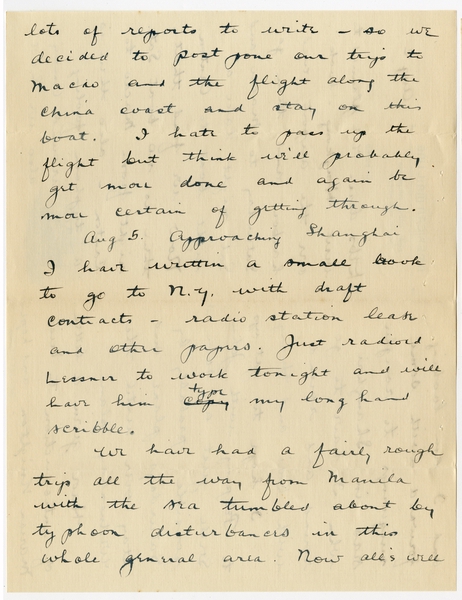 lots of reports to write - so we
decided to postpone our trips to
Macao and the flight along the
China coast and stay on this
boat. I hate to pass up the
flight but think we'll probably
get more done and again be
more certain of getting through.
Aug 5. Approaching Shanghai
I have written a small book
to go to N.Y. with draft
contracts - radio station lease
and other papers. Just radioed
Lessner to work tonight and will
have him copy type my longhand
scribble.
We have had a fairly rough
trip all the way from Manila
with the sea tumbled about by
typhoon disturbances in this
whole general area. Now all's well